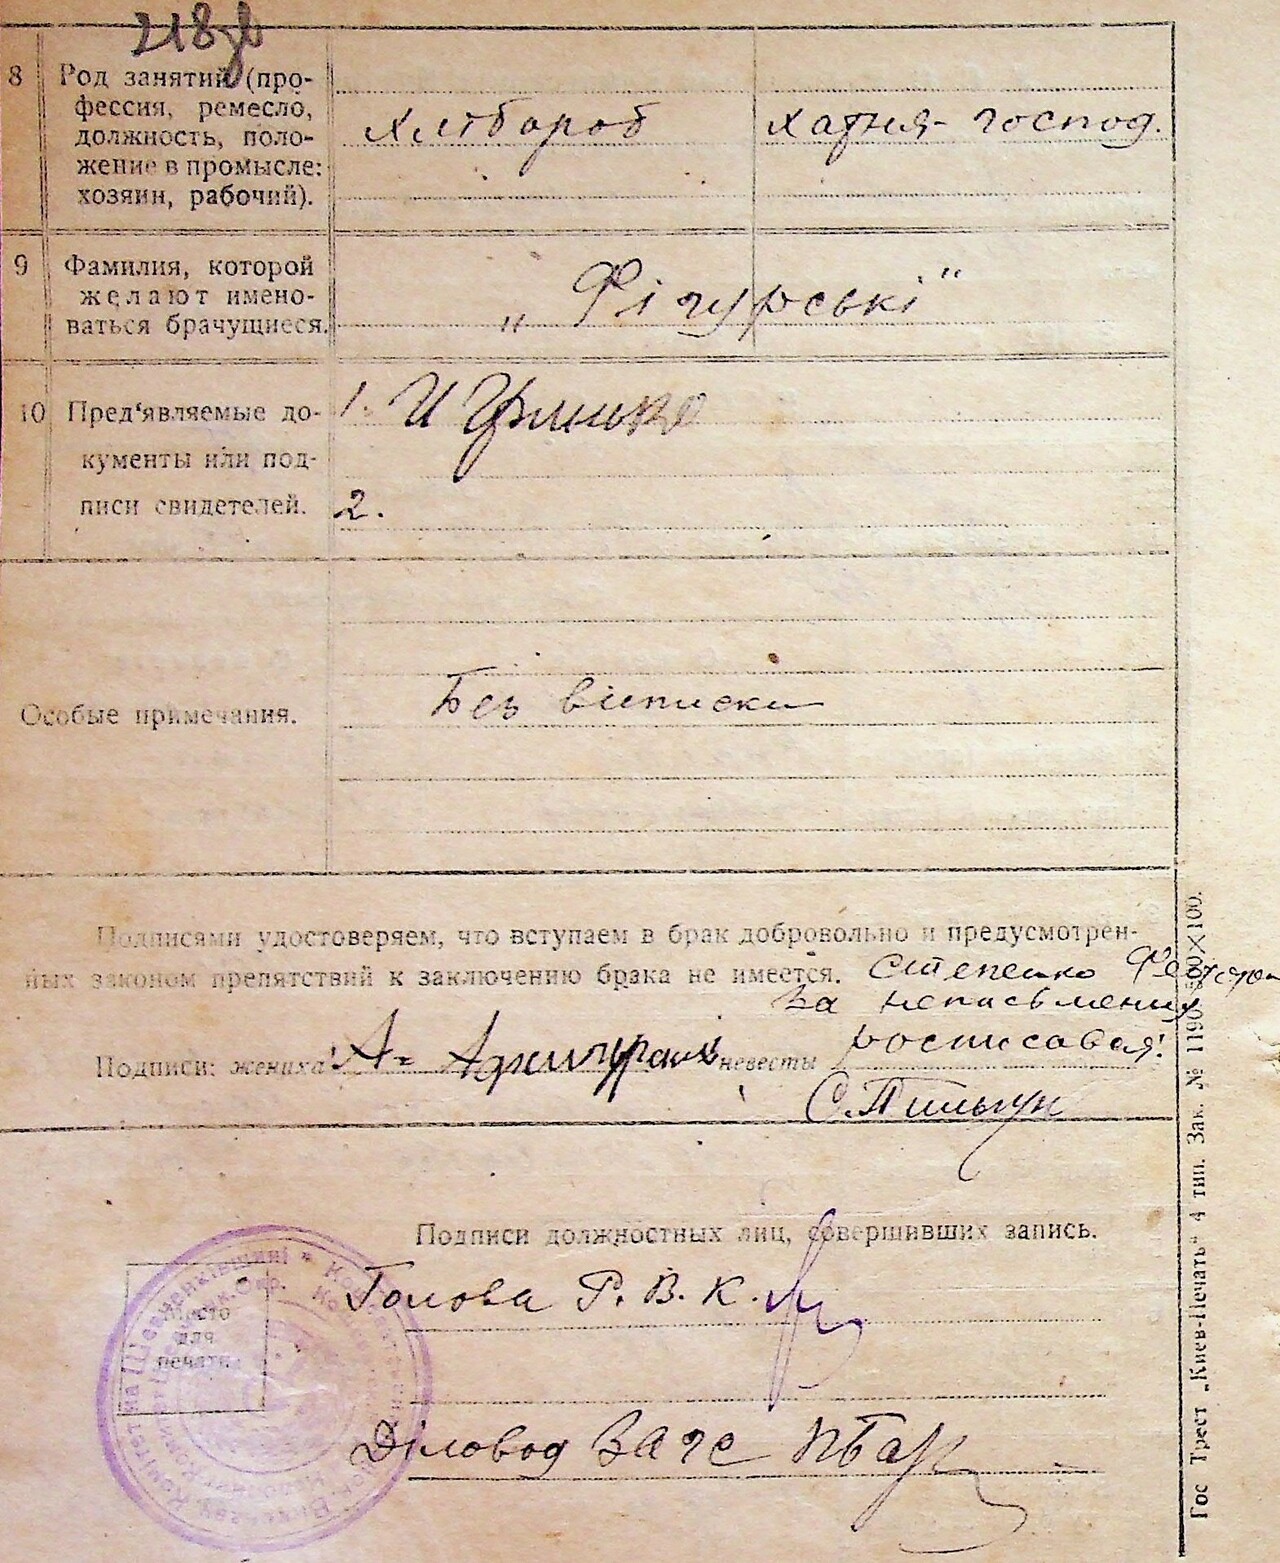 218зв
8 Род занятий (про-
фессия, ремесло,
должность, поло-
жение в промысле:
хозяин, рабочий).
Хлібороб
хатня-господ.
9 Фамилия, которой
желают имено-
ваться брачущиеся.
„Фігурські"
10 Пред'являемые до-
кументы или под-
писи свидетелей.
1. И
2.
Особые примечания.
Без виписки
Подписями удостоверяем, что вступаем в брак добровольно и предусмотрен-
ных законом препятствий к заключению брака не имеется.
Степенко
За неписьменну
Подписи: жениха А- невесты росписався!
Подписи должностных лиц, совершивших запись.
Место
для
печати.
Голова Р. В. К.
Діловод Загс
Гос Трест „Киев-Печать" 4 тип. Зак. № 1190